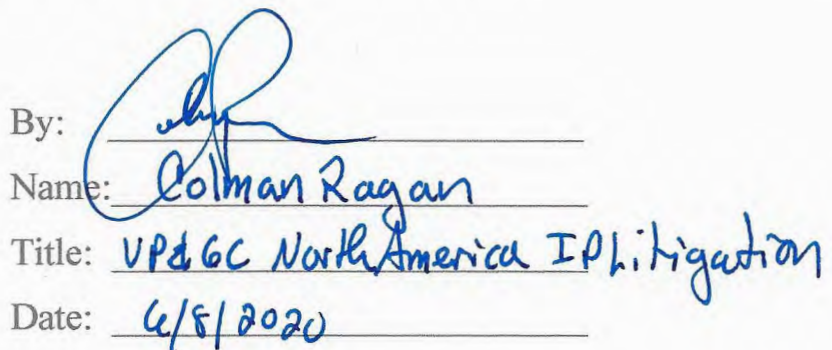 By:
Name: Colman Ragan
Title: VP & GC North America IP Litigation
Date: 6/8/2020